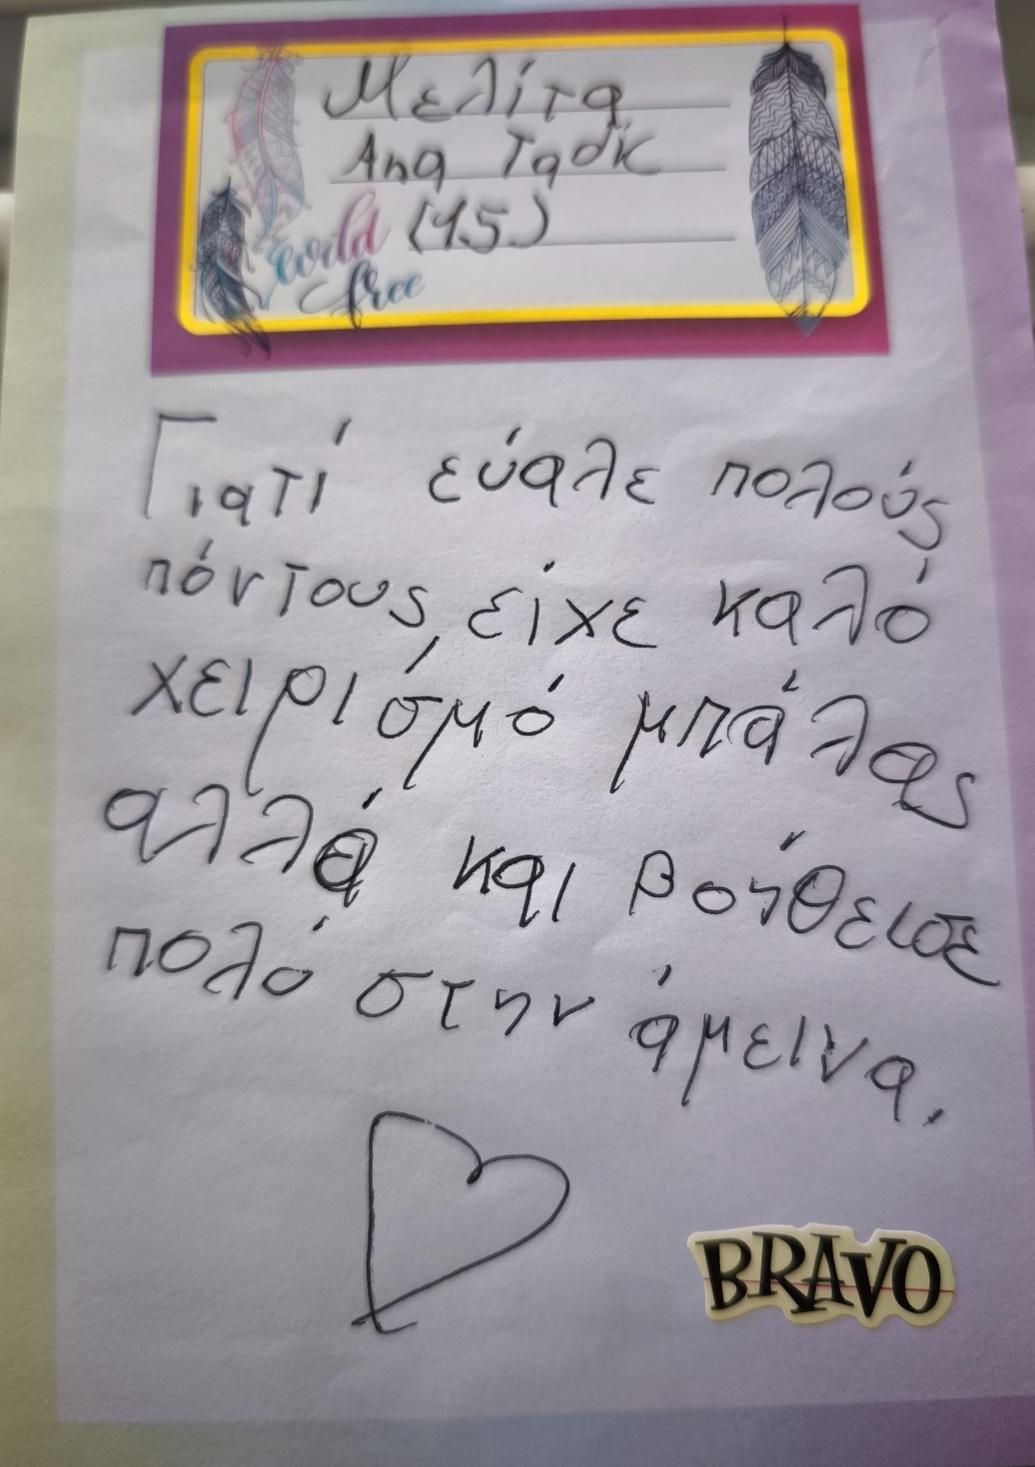 Μελίτα
Ana Tadić
(15)
wild
free
Γιατί εύαλε πολούς
πόντους, είχε καλό
χειρισμό μπάλας
αλλά και βοήθεισε
πολύ στην άμεινα.
BRAVO